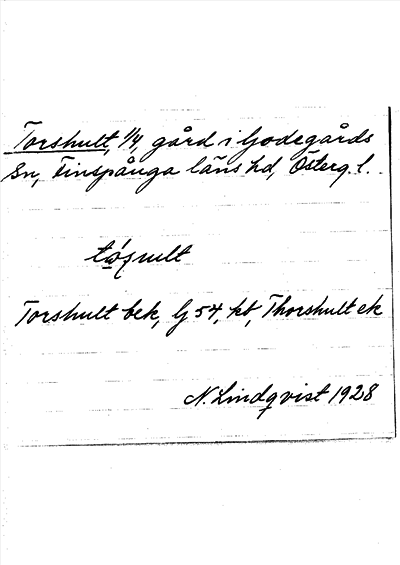 Torshult, 1/4, gård i Godegårds
Sn, Finspånga läns hd, Österg. l.
Torshult bek, G 54, kb, Thorshult ek
N. Lindqvist 1928